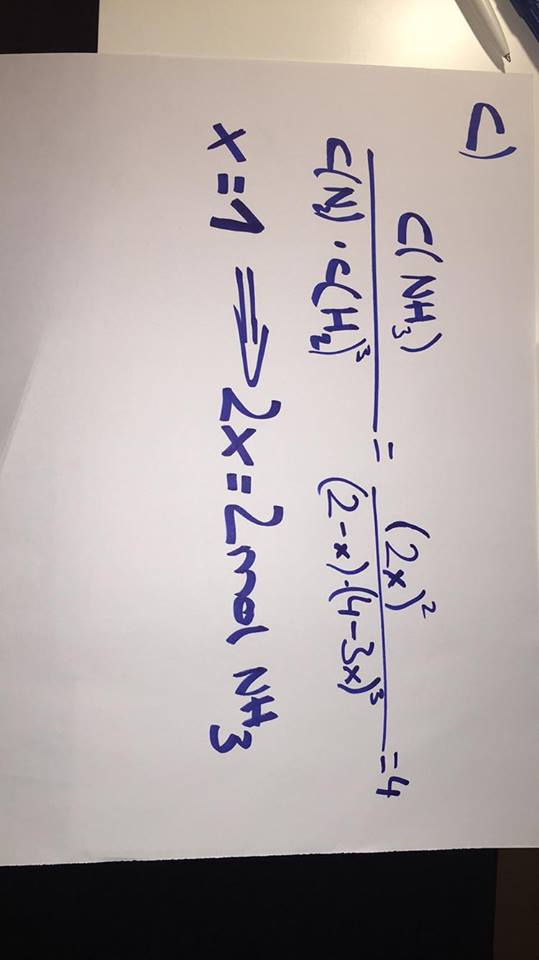 c)
C(NH₃) / C(N₂) · C(H₂)³ = (2x)² / (2-x)·(4-3x)³ = 4
x=1 ⇒ 2x=2mol NH₃